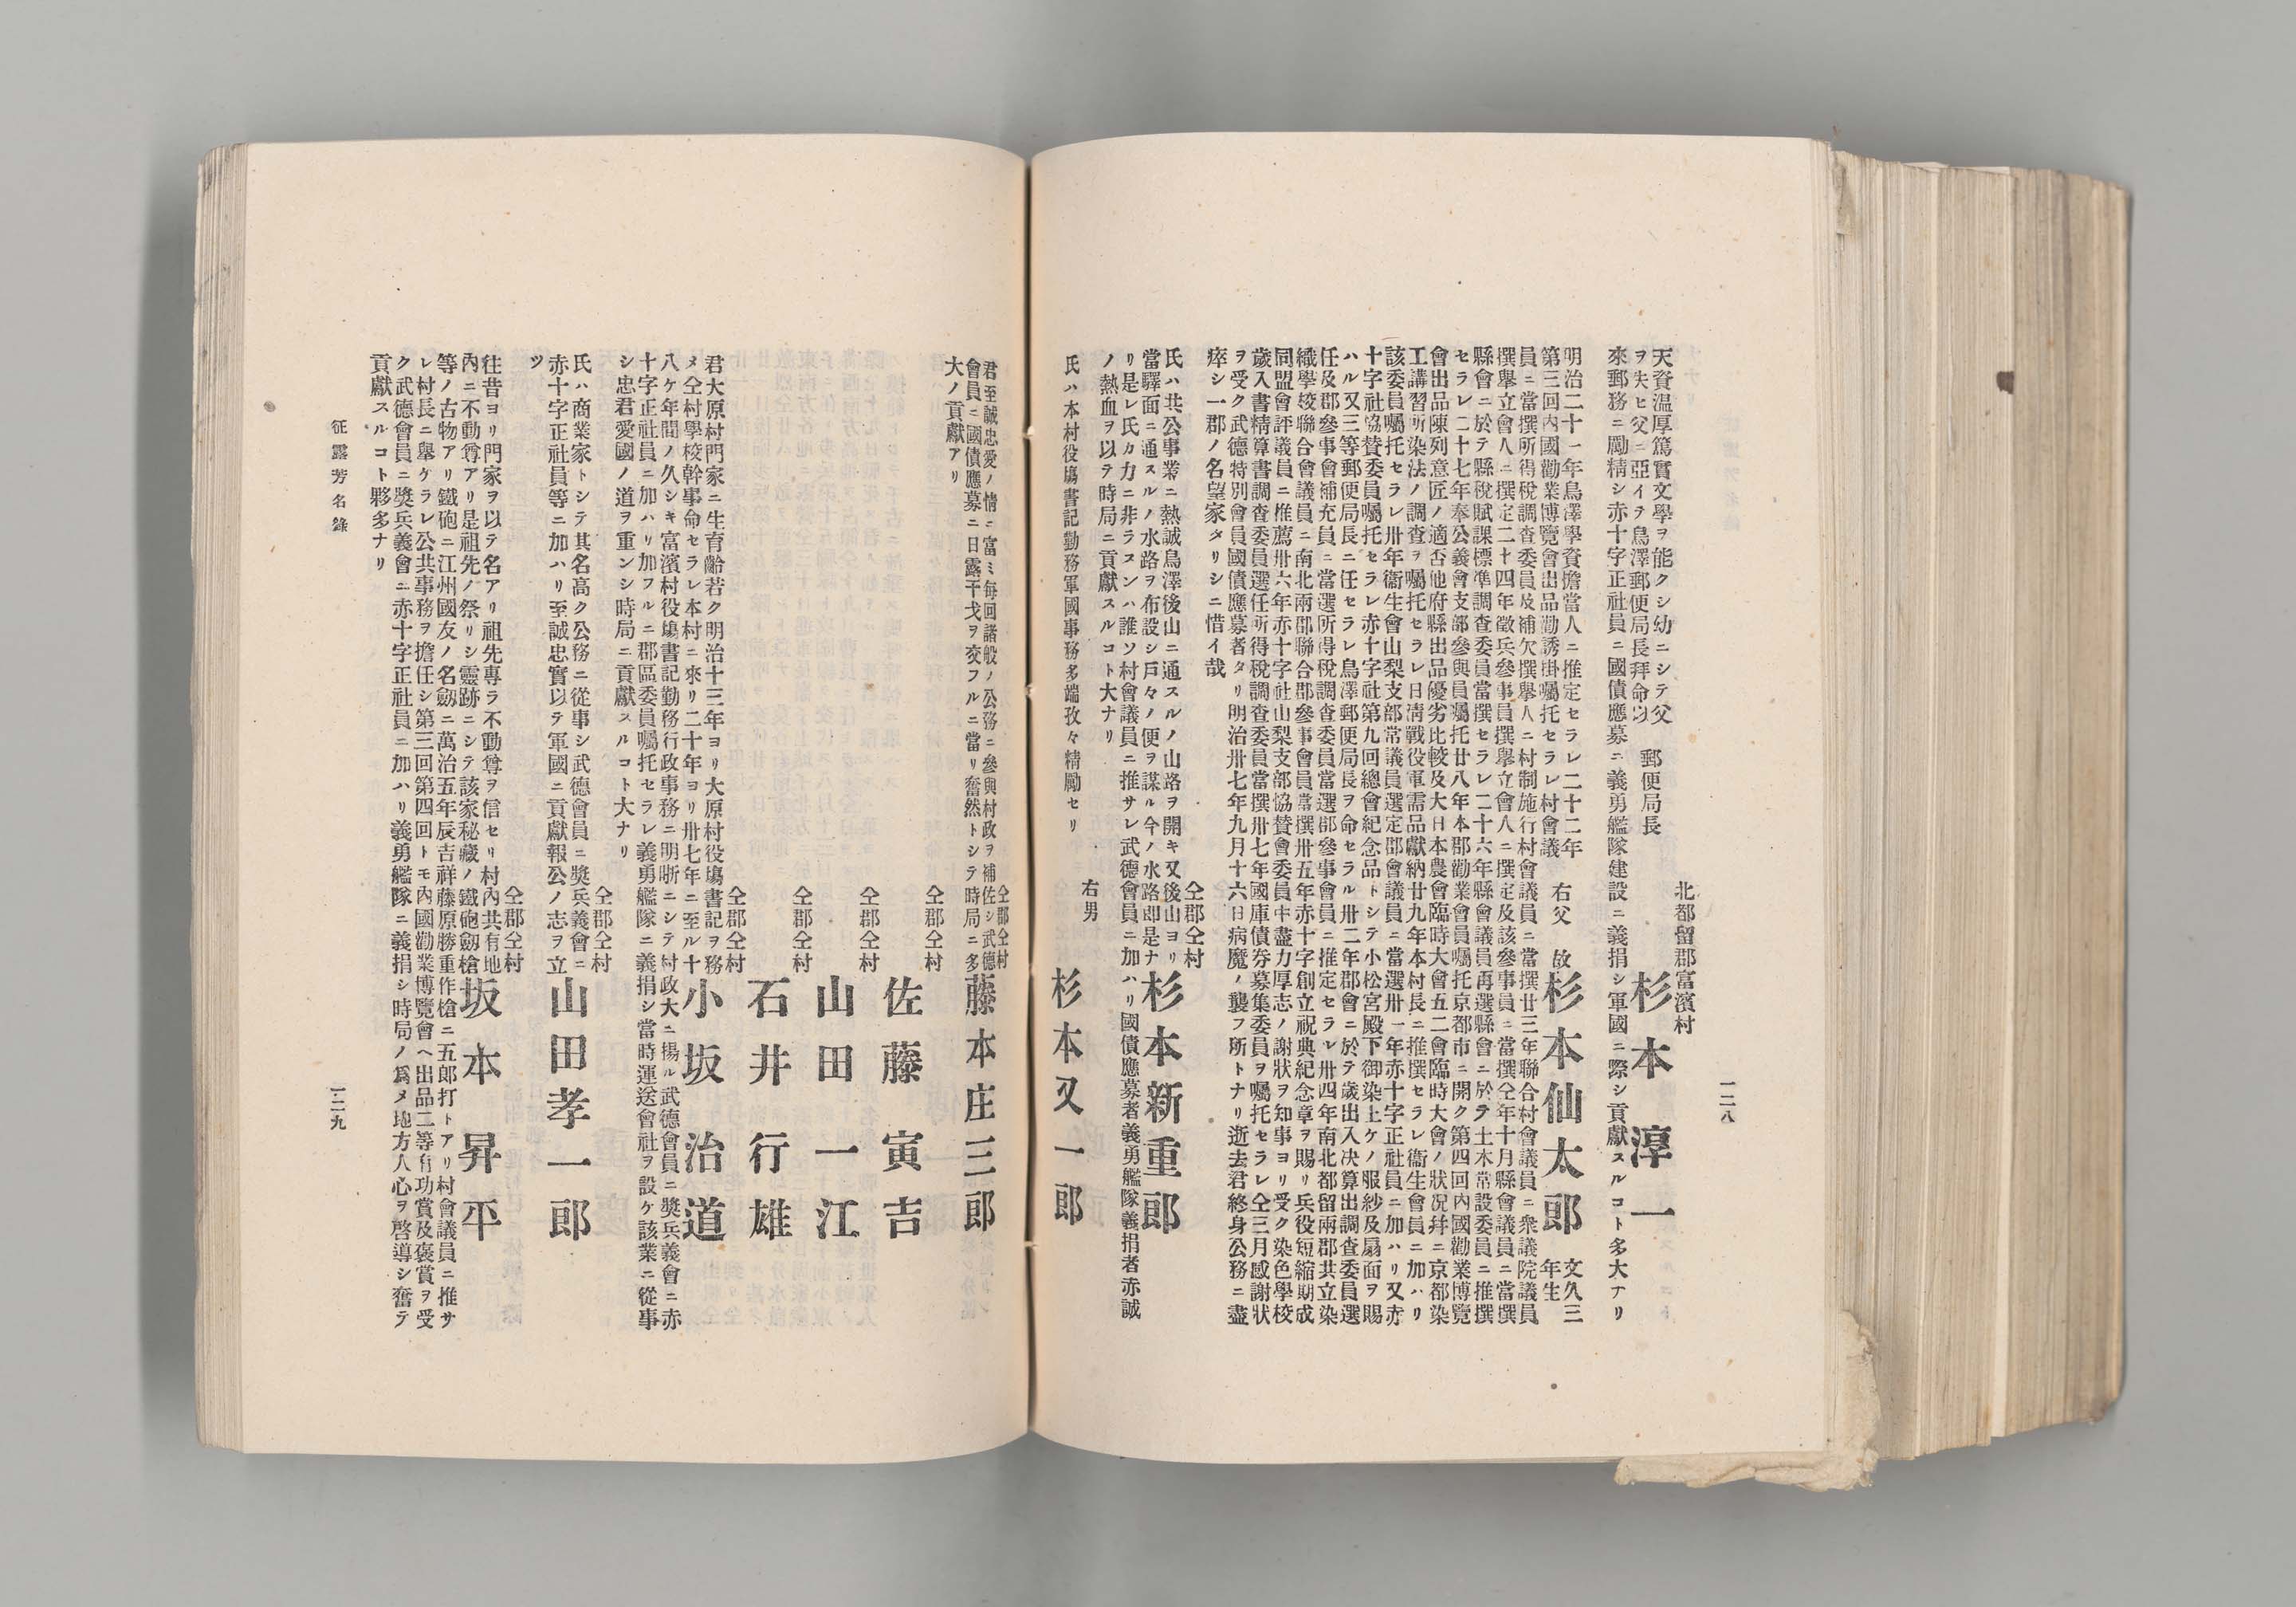 一二八
北都留郡富濱村
郵便局長
杉本淳一
天資温厚篤實文學ヲ能クシ幼ニシテ父
ヲ失ヒ父ニ亞イテ鳥澤郵便局長拜命以
來郵務ニ勵精シ赤十字正社員ニ國債應募ニ義勇艦隊建設ニ義捐シ軍國ニ際シ貢獻スルコト多大ナリ
右父 故 杉本仙太郎 文久三年生
明治二十一年鳥澤學資擔當人ニ推定セラレ二十二年
第三回內國勸業博覽會出品勸誘掛囑托セラレ村會議
員ニ當撰所得稅調查委員及補欠撰擧人ニ村制施行村會議員ニ當撰廿三年聯合村會議員ニ衆議院議員
撰擧立會人ニ撰定二十四年徵兵參事員撰擧立會人ニ撰定及該參事員ニ當撰仝年十月縣會議員ニ當撰
縣會ニ於テ縣稅賦課標準調查委員當撰セラレ二十六年縣會議員再選縣會ニ於テ土木常設委員ニ推撰
セラレ二十七年奉公義會支部參與員囑托廿八年本郡勸業會員囑托京都市ニ開ク第四回內國勸業博覽
會出品陳列意匠ノ適否他府縣出品優劣比較及大日本農會臨時大會五二會臨時大會ノ狀况幷ニ京都染
工講習所染法ノ調查ヲ囑托セラレ日淸戰役軍需品獻納廿九年本村長ニ推撰セラレ衞生會員ニ加ハリ
該委員囑托セラレ卅年衞生會山梨支部常議員選定郡會議員ニ當選卅一年赤十字正社員ニ加ハリ又赤
十字社協贊委員囑托セラレ赤十字社第九回總會紀念品トシテ小松宮殿下御染上ケノ服紗及扇面ヲ賜
ハル又三等郵便局長ニ任セラレ鳥澤郵便局長ヲ命セラル卅二年郡會ニ於テ歲出入决算出調查委員選
任及郡參事會補充員ニ當選所得稅調查委員當選郡參事會員ニ推定セラル卅四年南北都留兩郡共立染
織學校聯合會議員ニ南北兩郡聯合郡參事會員當撰卅五年赤十字創立祝典紀念章ヲ賜リ兵役短縮期成
同盟會評議員ニ推薦卅六年赤十字社山梨支部協贊會委員中盡力厚志ノ謝狀ヲ知事ヨリ受ク染色學校
歲入書精算書調查委員選任所得稅調查委員當撰卅七年國庫債劵募集委員ヲ囑托セラレ仝三月感謝狀
ヲ受ク武德特別會員國債應募者タリ明治卅七年九月十六日病魔ノ襲フ所トナリ逝去君終身公務ニ盡
瘁シ一郡ノ名望家タリシニ惜イ哉
仝郡仝村
杉本新重郎
氏ハ共公事業ニ熱誠鳥澤後山ニ通スルノ山路ヲ開キ又後山ヨリ
當驛面ニ通スルノ水路ヲ布設シ戶々ノ便ヲ謀ル今ノ水路卽是ナ
リ是レ氏カ力ニ非ラスンハ誰ソ村會議員ニ推サレ武德會員ニ加ハリ國債應募者義勇艦隊義捐者赤誠
ノ熱血ヲ以テ時局ニ貢獻スルコト大ナリ
右男
杉本又一郎
氏ハ本村役塲書記勤務軍國事務多端孜々精勵セリ
仝郡仝村
藤本庄三郎
君至誠忠愛ノ情ニ富ミ每回諸般ノ公務ニ參與村政ヲ補佐シ武德
會員ニ國債應募ニ日露干戈ヲ交フルニ當リ奮然トシテ時局ニ多
大ノ貢獻アリ
仝郡仝村
佐藤寅吉
仝郡仝村
山田一江
仝郡仝村
石井行雄
仝郡仝村
小坂治道
君大原村門家ニ生育齡若ク明治十三年ヨリ大原村役塲書記ヲ務
メ仝村學校幹事命セラレ本村ニ來リ二十年ヨリ卅七年ニ至ル十
八ケ年間ノ久シキ富濱村役塲書記勤務行政事務ニ明晣ニシテ村政大ニ揚ル武德會員ニ奬兵義會ニ赤
十字正社員ニ加ハリ加フルニ郡區委員囑托セラレ義勇艦隊ニ義捐シ當時運送會社ヲ設ケ該業ニ從事
シ忠君愛國ノ道ヲ重ンシ時局ニ貢獻スルコト大ナリ
仝郡仝村
山田孝一郎
氏ハ商業家トシテ其名高ク公務ニ從事シ武德會員ニ奬兵義會ニ
赤十字正社員等ニ加ハリ至誠忠實以テ軍國ニ貢獻報公ノ志ヲ立
ツ
仝郡仝村
坂本昇平
往昔ヨリ門家ヲ以テ名アリ祖先專ラ不動尊ヲ信セリ村內共有地
內ニ不動尊アリ是祖先ノ祭リシ靈跡ニシテ該家秘藏ノ鐵砲劒槍
等ノ古物アリ鐵砲ニ江州國友ノ名劒ニ萬治五年辰吉祥藤原勝重作槍ニ五郎打トアリ村會議員ニ推サ
レ村長ニ擧ケラレ公共事務ヲ擔任シ第三回第四回トモ內國勸業博覽會ヘ出品二等有功賞及褒賞ヲ受
ク武德會員ニ奬兵義會ニ赤十字正社員ニ加ハリ義勇艦隊ニ義捐シ時局ノ爲メ地方人心ヲ啓導シ奮テ
貢獻スルコト夥多ナリ
征露芳名錄
一二九